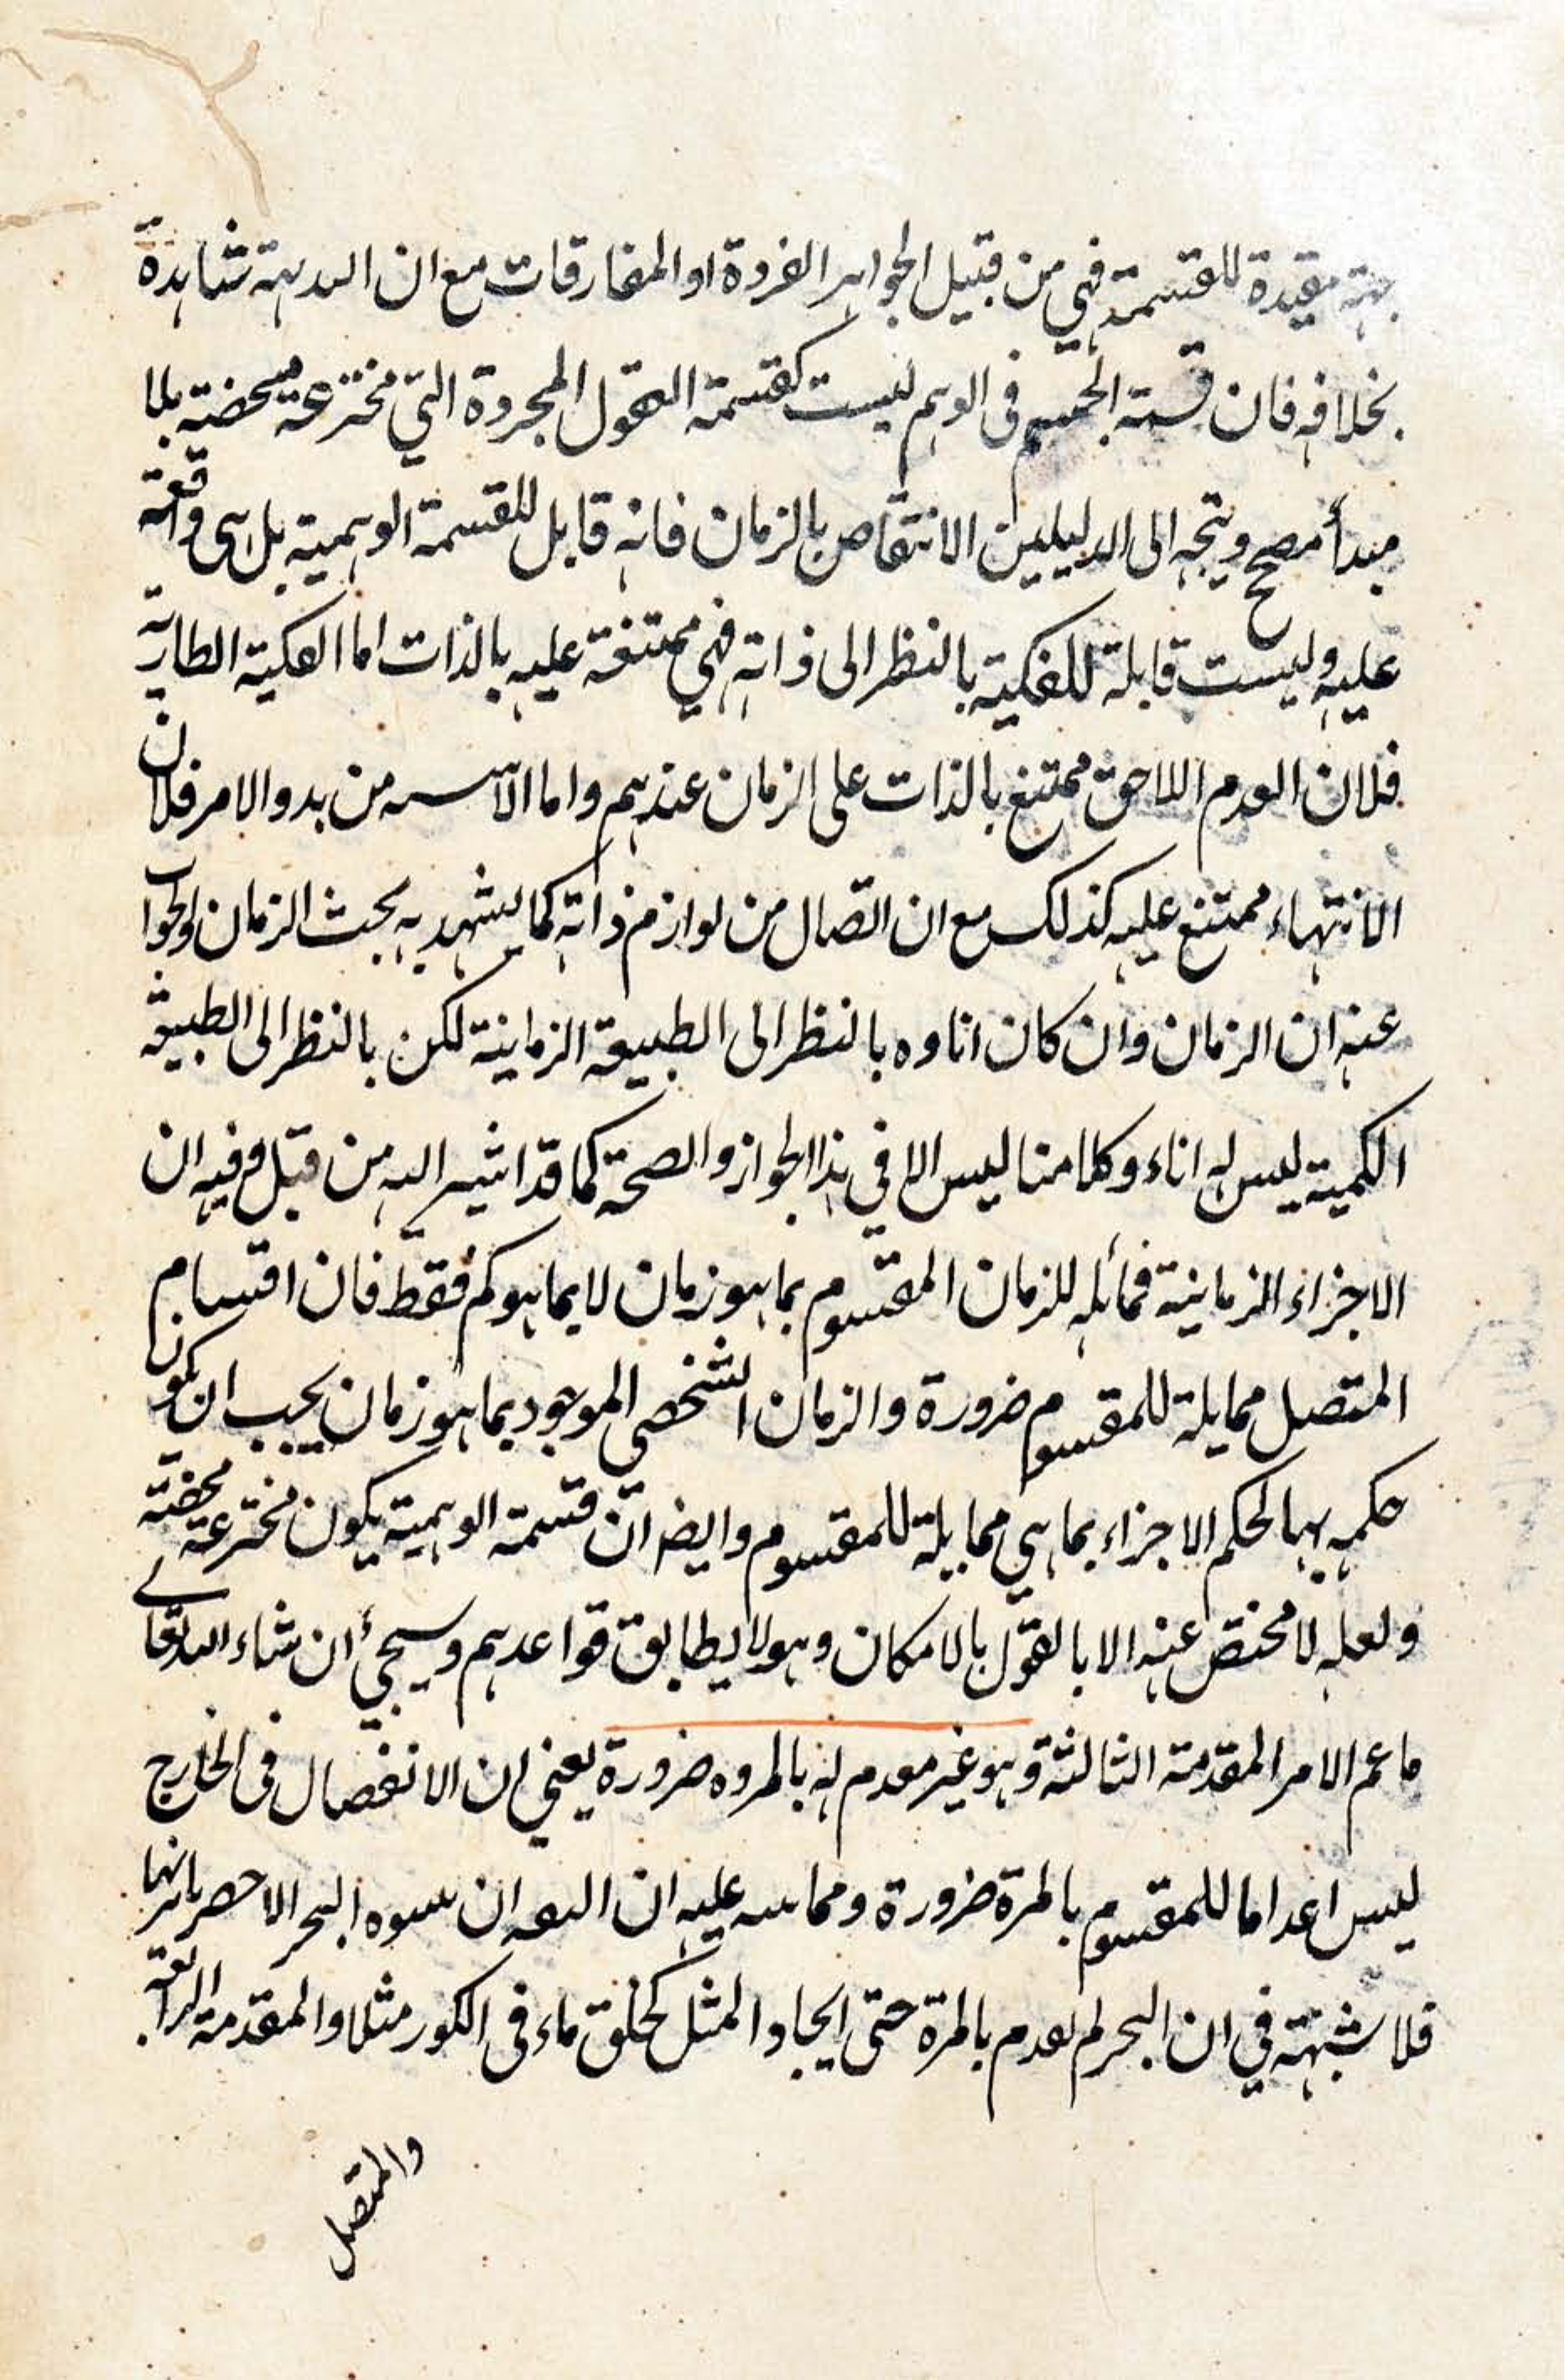 جهة مقيدة للقسمة فهي من قبيل الجواهر الفردة او المفارقات مع ان البديهة شاهدة
بخلافه فان قسمة الجسم فى الوهم ليست كقسمة العقول المجردة التي مخترعة محضة بلا
مبدأ مصحح ويتجه الى الدليلين الانتقاض بالزمان فانه قابل للقسمة الوهمية بل هى واقعة
عليه وليست قابلة للفكية بالنظر الى ذاته فهي ممتنعة عليه بالذات اما الفكية الطارية
فلان العدم اللاحق ممتنع بالذات على الزمان عندهم واما من بدو الامر فلان
الانتهاء ممتنع عليه كذلك مع ان اتصال من لوازم ذاته كما يشهد به بحث الزمان والجواب
عنه ان الزمان وان كان اناوه بالنظر الى الطبيعة الزمانية لكن بالنظر الى الطبيعة
الكمية ليس له اناء وكلامنا ليس الا في هذا الجواز والصحة كما قد اشير اليه من قبل وفيه ان
الاجزاء الزمانية مماثله للزمان المقسوم بما هو زمان لا بما هو كم فقط فان اقسام
المتصل مماثلة للمقسوم ضرورة والزمان الشخصي الموجود بما هو زمان يجب ان يكون
حكمه بها لحكم الاجزاء بما هي مماثلة للمقسوم وايضا ان قسمة الوهمية يكون مخترعة محضة
ولعله لا مخلص عنه الا بالقول بالامكان وهو لا يطابق قواعدهم وسيجئ ان شاء الله تعالے
ما عم الامر المقدمة الثالثة وهو غير معدم له بالمره ضرورة يعني ان الانفصال فى الخارج
ليس اعداما للمقسوم بالمرة ضرورة ومما عليه ان البحر
فلا شبهة في ان البحر لم يعدم بالمرة حتى ايجاد المثل كخلق ماء فى الكوز مثلا والمقدمة الرابعة
والمتصل